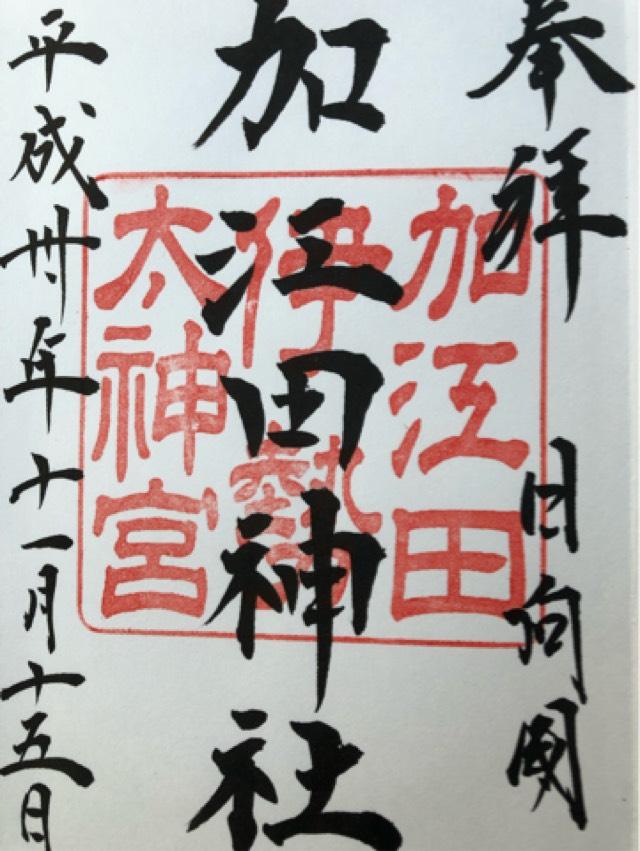 奉拝 日向國
加江田神社
平成卅年十一月十五日
加江田
伊勢
太神宮